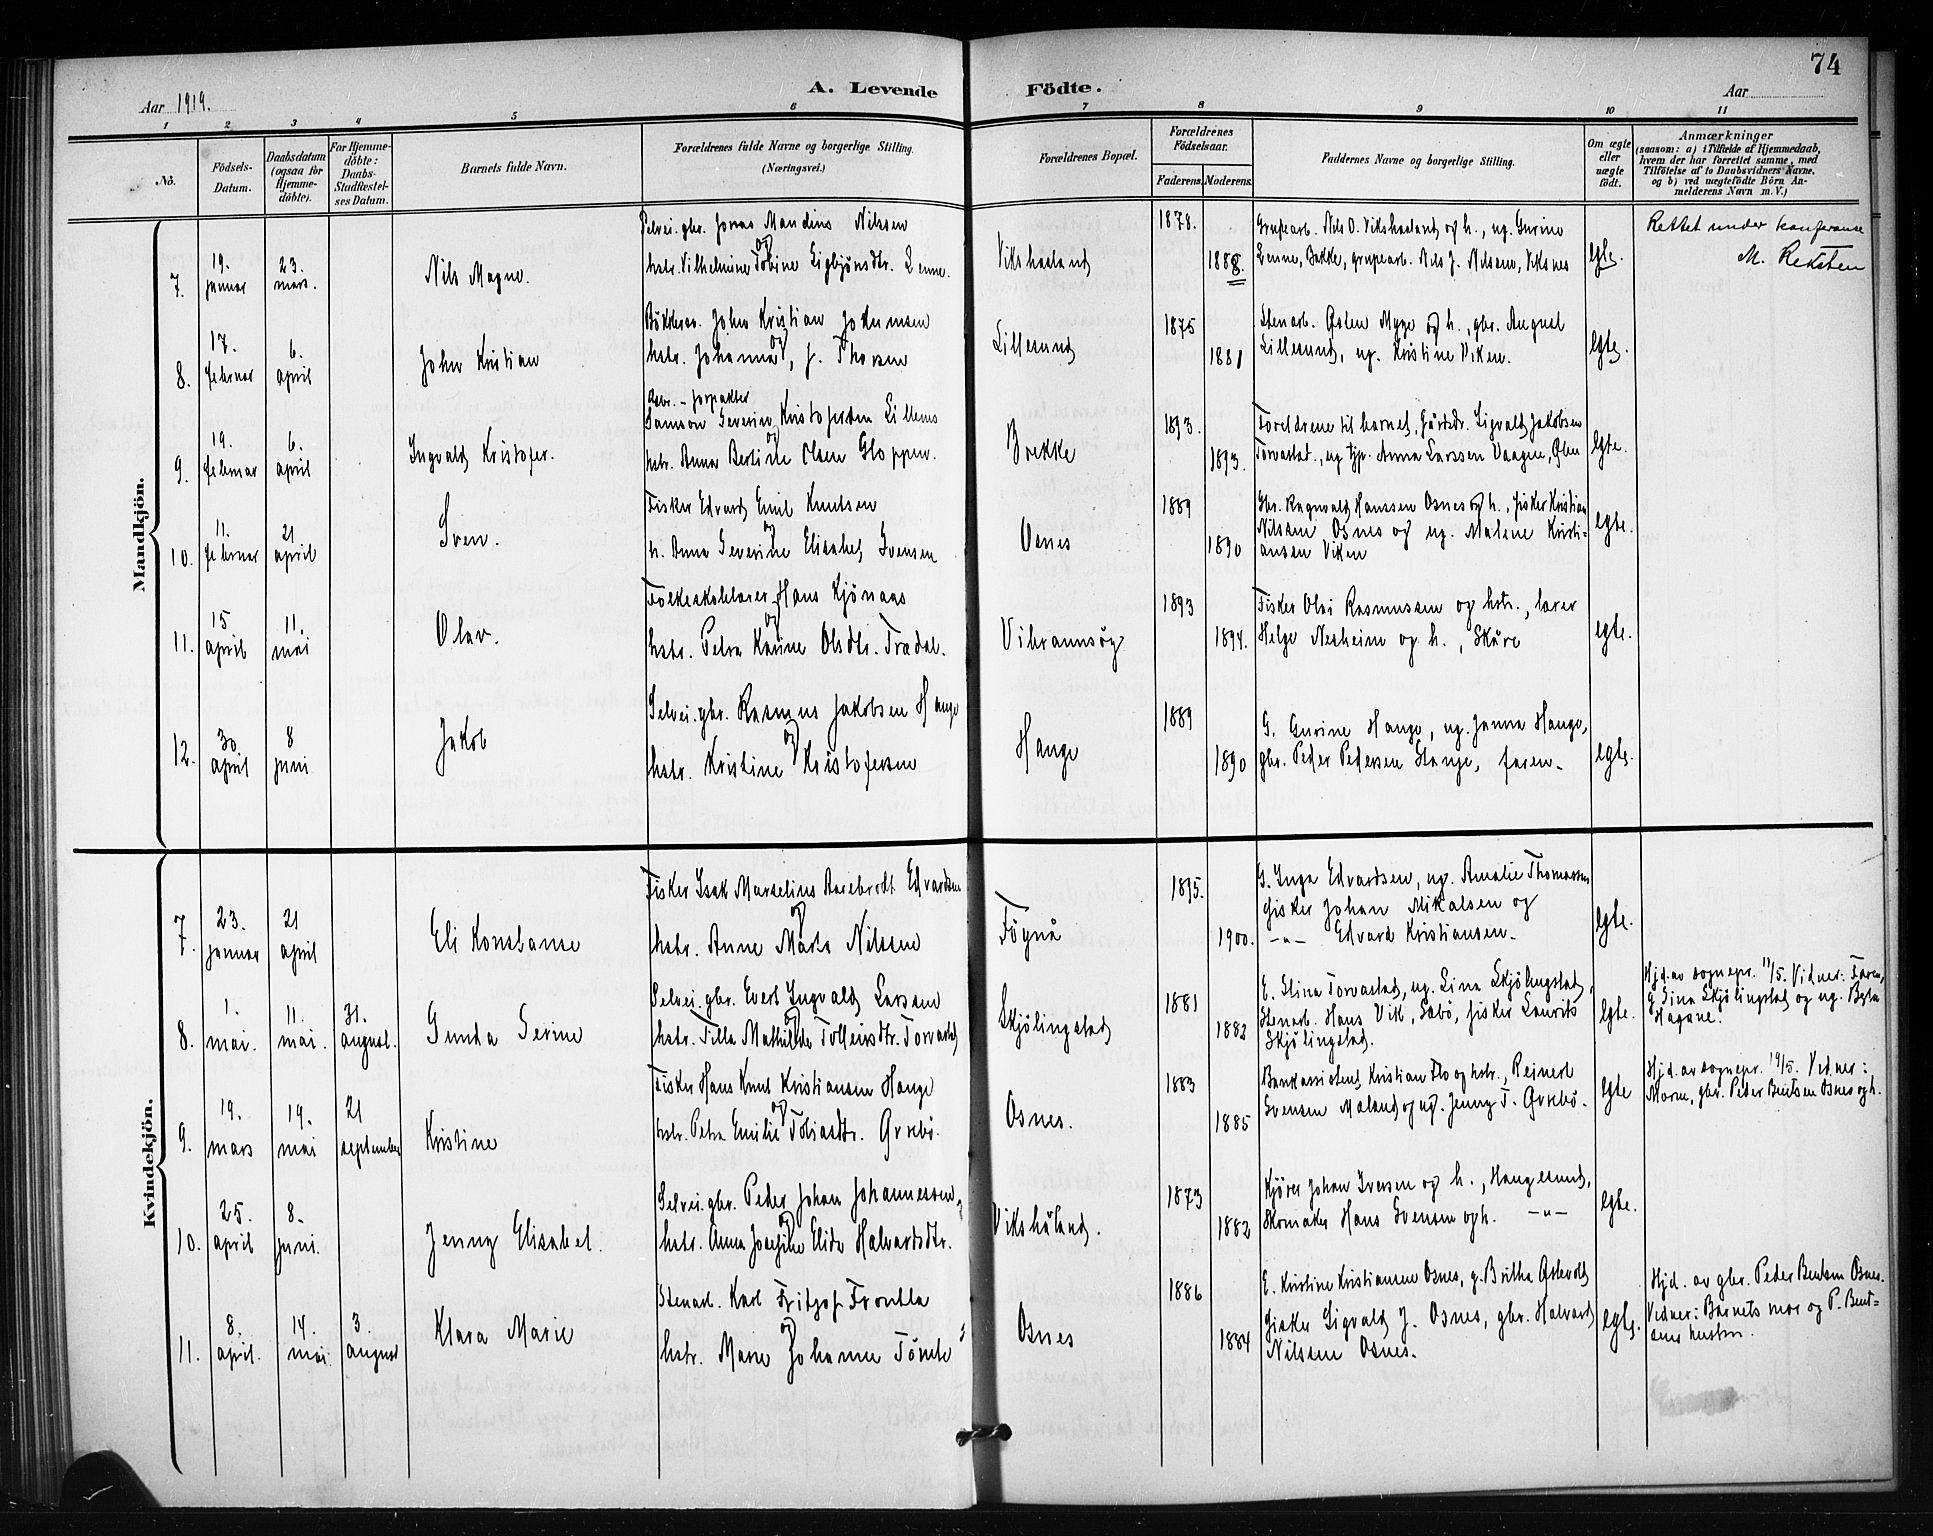 74
Aar 1919.
A. Levende Födte.
Aar
1 2 3 4 5 6 7 8 9 10 11
No.
Födsels-Datum.
Daabsdatum (ogsaa for Hjemme-döbte).
For Hjemme-döbte: Daabs-Stadfæstel-ses Datum.
Barnets fulde Navn.
Forældrenes fulde Navne og borgerlige Stilling.
(Næringsvei.)
Forældrenes Bopæl.
Forældrenes Födselsaar.
Faderens.
Moderens.
Faddernes Navne og borgerlige Stilling.
Om ægte eller uægte födt.
Anmærkninger
(saasom: a) i Tilfælde af Hjemmedaab,
hvem der har forrettet samme, med
Tilföielse af to Daabsvidners Navne,
og b) ved uægtefödte Börn An-
melderens Navn m. V.)
Mandkjön.
7. 19. januar 23. mars. Nils Magne.
Selvei. gbr. Jonas Mandius Nilsen
og
hstr. Vilhelmine Tobine Sigbjönsdtr. Lenne.
Vikshaaland
1878.
1888.
Grubearb. Nils O. Vikshaaland og h., ug. Gurine
Lenne, Bakke, grubearb. Nils J. Nilsen, Viksnes
egte.
Rettet under konferanse
M. Reksten
8. 17. februar 6. april John Kristian
Bökker. John Kristian Jokumsen
og
hstr. Johanna, f. Thorsen
Lillesund
1875
1881
Stenarb. Østen Myge og h., gbr. August
Lillesund, ug. Kristine Viken.
egte.
9. 19. februar 6. april Ingvald Kristofer.
Gbr. - forpakter
Samson Severin Kristofersen Lillenes
og
hstr. Anna Bertine Olsen Gloppen.
Brekke
1893.
1893.
Foreldrene til barnet, Gårdbr. Sigvald Jakobsen
Torvastad., ug tjp. Anna Larssen Vaagen, Ølen
egte.
10. 11. februar 21 april Sven.
Fisker Edvard Emil Knutsen
og
h. Anna Severine Elisabet Svensen
Osnes
1889
1890
Gbr. Ragnvald Hanssen Osnes og h., fisker Kristian
Nilsen Osnes og ug. Malene Kristi-
ansen Viken
egte.
11. 15 april 11. mai Olav.
Folkeskolelærer Hans Kjönaas
og
hstr. Petra Karine Olsdtr. Trædal.
Vibrannsöy
1893
1894.
Fisker Olai Rasmussen og hstr., lærer
Helge Nesheim og h., Skåre
egte.
12. 30. april 8 juni Jakob
Selvei. gbr. Rasmus Jakobsen Hauge
og
hstr. Kristine Kristofersen
Hauge
1889
1890
G. Gurine Hauge, ug. Janna Hauge,
gbr. Peder Pedersen Hauge, faren.
egte.
Kvindekjön.
7. 23. januar 21 april Eli Konstanse
Fisker Isak Marselius Aarebrodt Edvardsen
og
hstr. Anne Marta Nilssen
Föynå
1895.
1900.
G. Inga Edvardsen, ug. Amalie Thomassen
fisker Johan Mikalsen og
-"- Edvard Kristiansen.
egte.
8. 1. mai. 11. mai. 31. august. Gunda Serine
Selvei. gbr. Evert Ingvald Larsen
og
hstr. Tilla Mathilde Tollevsdtr. Torvastad
Skjölingstad
1881
1882
E. Elina Torvastad, ug. Lina Skjölingstad,
Stenarb. Hans Vik, Sæbö, fisker Laurits
Skjölingstad.
egte.
Hjd. av sognepr. 11/5. Vidner: Faren,
g. Sina Skjölingstad og ug. Berta
Hagane.
9. 19. mars 19. mai 21 september Kristine
Fisker Hans Knut Kristiansen Hauge
og
hstr. Petra Emilie Tobiasdtr. Qvebö.
Osnes.
1883
1885
Bankassistent Kristian Flo og hstr., Reinert
Svensen Maland og ug. Jenny T. Qvebö.
egte
Hjd. av sognepr. 19/5. Vidner:
Moren, gbr. Peder Bentsen Osnes og h.
10. 25. april 8. juni. Jenny Elisabet.
Selvei. gbr. Peder Johan Johannessen
og
hstr. Anna Josefine Elida Halvardsdtr.
Vikshåland.
1873
1882
Kjörer Johan Iversen og h., Haugesund,
Skomaker Hans Svensen og h. -"-
egte.
11. 8. april. 14. mai 3. august Klara Marie
Stenarb. Karl Fritjof
og
hstr. Marie Johanne
Osnes
1886
1884
E. Kristine Kristiansen Osnes, g. Britha
Fisker Sigvald J. Osnes, gbr. Halvard
Nilssen Osnes.
egte.
Hjd. av gbr. Peder Bentsen Osnes.
Vidner: Barnets mor og P. Bent-
sens hustru.